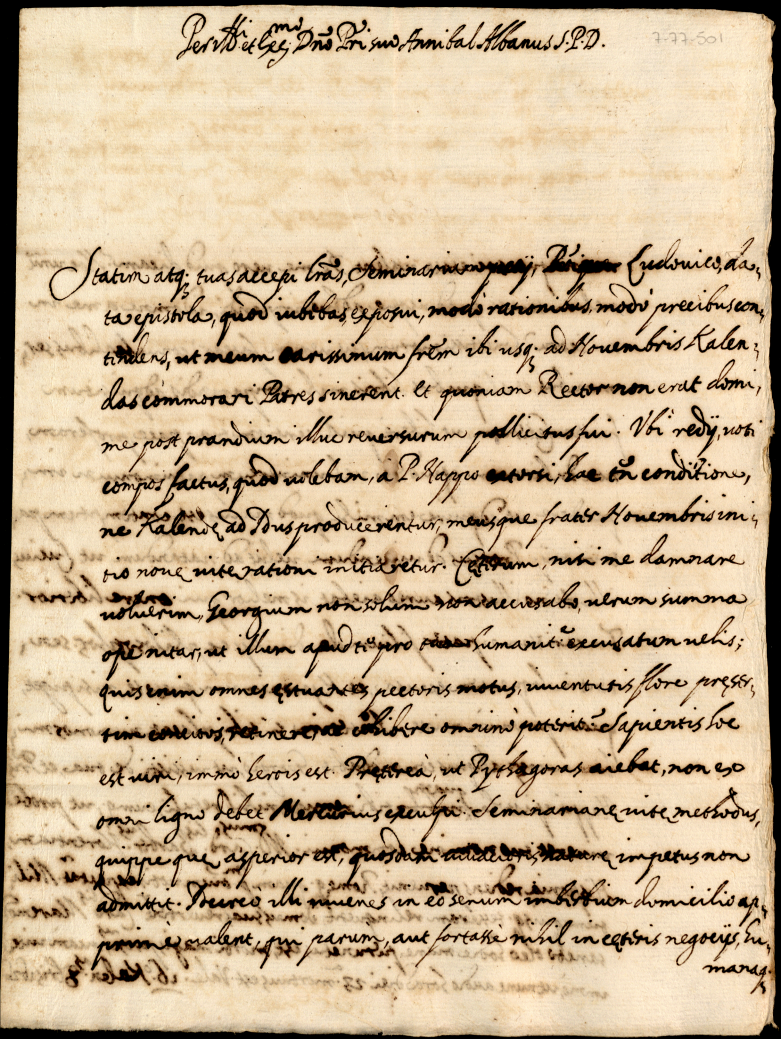 Per Illi et Exc.mo Dño Při suo Annibal Albanus S.P.D.
7-77-501
Statim atq; tuas accepi lrãs, Seminariam Ludovico, da-
ta epistola, quod iubebas, exposui, modò rationibus, modò precibus con-
tendens, ut meum carissimum frẽm ibi usq; ad Novembris Kalen-
das commorari Patres sinerent. Et quoniam Rector non erat domi,
me post prandium illuc reversurum pollicitus fui. Ubi redij, voti
compos factus, quod volebam, à P. Nappo extorsi, hac tñ conditione,
ne Kalendę ad Idus producerentur, meusque frater Novembris ini-
tio novę vitę rationi initiaretur. Cęterum, nisi me damnare
voluerim, Georgium non solum non accusabo, verum summa
ope nitar, ut illum apud te pro humanitẽ excusatum velis;
quis enim omnes ęstuantes pectoris motus, iuventutis flore pręser-
tim concitos, retinere, ac cohibere omninò poterit? Sapientis hoc
est viri, immò herois est. Pręterea, ut Pythagoras aiebat, non ex
omni ligno debet Mercurius exculpi. Seminarianę vitę methodus,
quippe quę asperior est, quosdam naturę impetus non
admittit. Idcircò illi iuvenes in eo senum imberbium domicilio ap-
primè valent, qui parum, aut fortassè nihil in cęteris negocijs, hu-
manaq;